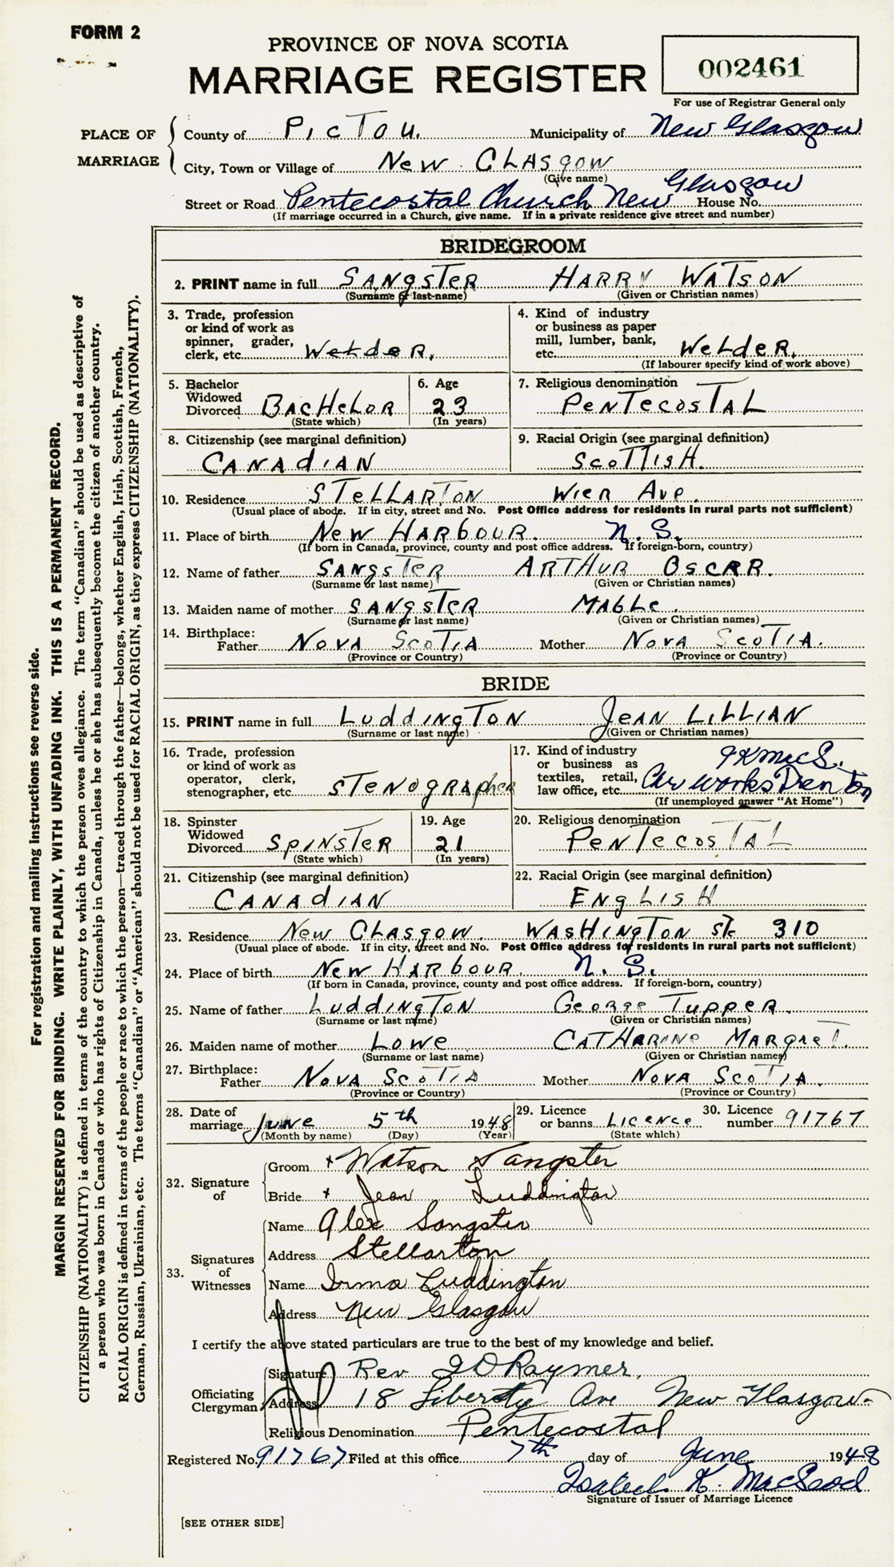 FORM 2
PROVINCE OF NOVA SCOTIA
MARRIAGE REGISTER
002461
For use of Registrar General only
PLACE OF MARRIAGE
County of PICTOU. Municipality of New Glasgow
City, Town or Village of NEW GLASgOW
(Give name)
Street or Road Pentecostal Church New Glasgow House No.
(If marriage occurred in a Church, give name. If in a private residence give street and number)
BRIDEGROOM
2. PRINT name in full SANgSTER HARRY WATSON
(Surname or last-name) (Given or Christian names)
3. Trade, profession or kind of work as spinner, grader, clerk, etc. WeLdeR.
4. Kind of industry or business as paper mill, lumber, bank, etc. WeLdeR.
(If labourer specify kind of work above)
5. Bachelor Widowed Divorced BACHeLOR
(State which)
6. Age 23
(In years)
7. Religious denomination PeNTecosTAL
8. Citizenship (see marginal definition)
CANAdiAN
9. Racial Origin (see marginal definition)
ScoTTisH.
10. Residence STeLLARTON Wier Ave.
(Usual place of abode. If in city, street and No. Post Office address for residents in rural parts not sufficient)
11. Place of birth New HARbOUR. N.S.
(If born in Canada, province, county and post office address. If foreign-born, country)
12. Name of father SANgsTeR ARTHUR OscAR.
(Surname or last name) (Given or Christian names)
13. Maiden name of mother SANgSTeR MAbLe.
(Surname or last name) (Given or Christian names)
14. Birthplace: Father NOVA ScoTiA Mother NOVA ScoTiA.
(Province or Country) (Province or Country)
BRIDE
15. PRINT name in full LuddiNgTON JeAN LiLLiAN
(Surname or last name) (Given or Christian names)
16. Trade, profession or kind of work as operator, clerk, stenographer, etc. STeNOgRApheR
17. Kind of industry or business as textiles, retail, law office, etc. Car Works Trenton
(If unemployed answer "At Home")
18. Spinster Widowed Divorced SpiNSTeR
(State which)
19. Age 21
(In years)
20. Religious denomination PeNTecosTAL
21. Citizenship (see marginal definition)
CANAdiAN
22. Racial Origin (see marginal definition)
ENgLisH
23. Residence New GLASgOW. WASHiNgTON St. 310
(Usual place of abode. If in city, street and No. Post Office address for residents in rural parts not sufficient)
24. Place of birth New HARbOUR. N.S.
(If born in Canada, province, county and post office address. If foreign-born, country)
25. Name of father LuddiNgTON George Tupper.
(Surname or last name) (Given or Christian names)
26. Maiden name of mother LOWe CATHARiNe MARgReT.
(Surname or last name) (Given or Christian names)
27. Birthplace: Father NOVA ScoTiA Mother NOVA ScoTiA.
(Province or Country) (Province or Country)
28. Date of marriage June 5th 1948
(Month by name) (Day) (Year)
29. Licence or banns Licence
(State which)
30. Licence number 91767
32. Signature of
Groom + Watson Sangster
Bride + Jean Luddington
33. Signatures of Witnesses
Name Alex Sangster
Address Stellarton
Name Irma Luddington
Address New Glasgow
I certify the above stated particulars are true to the best of my knowledge and belief.
Officiating Clergyman
Signature Rev. Raymer.
Address 18 Liberty Ave New Glasgow.
Religious Denomination Pentecostal
Registered No. 91767 Filed at this office 7th day of June 1948
K. MacLeod
Signature of Issuer of Marriage Licence
[SEE OTHER SIDE]
For registration and mailing instructions see reverse side.
MARGIN RESERVED FOR BINDING. WRITE PLAINLY, WITH UNFADING INK. THIS IS A PERMANENT RECORD.
CITIZENSHIP (NATIONALITY) is defined in terms of the country to which the person owes allegiance. The term "Canadian" should be used as descriptive of
a person who was born in Canada or who has rights of Citizenship in Canada, unless he or she has subsequently become the citizen of another country.
RACIAL ORIGIN is defined in terms of the people or race to which the person—traced through the father—belongs, whether English, Irish, Scottish, French,
German, Russian, Ukrainian, etc. The terms "Canadian" or "American" should not be used for RACIAL ORIGIN, as they express CITIZENSHIP (NATIONALITY).